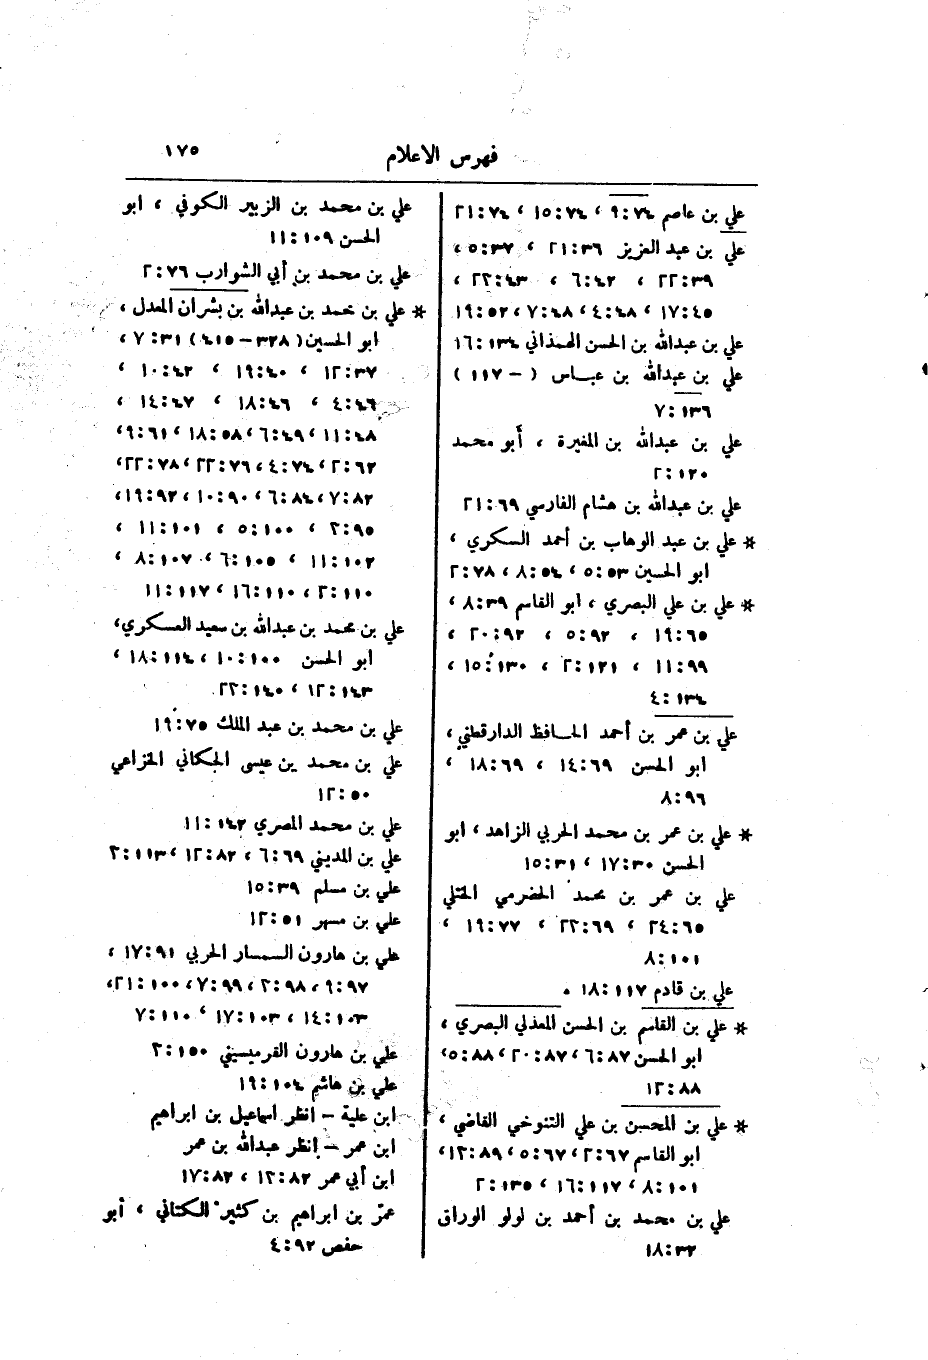 فهرس الاعلام ١٧٥
علي بن عاصم ٩:٧٤ ، ١٥:٧٤ ، ٢١:٧٤
علي بن عبد العزيز ٢١:٣٦ ، ٥:٣٧ ،
٢٢:٣٩ ، ٦:٤٢ ، ٢٢:٤٣ ،
١٧:٤٥ ، ٤:٤٨ ، ٧:٤٨ ، ١٩:٥٢
علي بن عبدالله بن الحسن الهمذاني ١٦:١٣٤
علي بن عبدالله بن عباس ( – ١١٧ )
٧:١٣٦
علي بن عبدالله بن المغيرة ، أبو محمد
٢:١٢٠
علي بن عبدالله بن هشام الفارسي ٢١:٦٩
* علي بن عبد الوهاب بن أحمد السكري ،
ابو الحسين ٥:٥٣ ، ٨:٥٤ ، ٢:٧٨
* علي بن علي البصري ، ابو القاسم ٨:٣٩ ،
١٩:٦٥ ، ٥:٩٢ ، ٢٠:٩٢ ،
١١:٩٩ ، ٢:١٢١ ، ١٥:١٣٠ ،
٤:١٣٤
علي بن عمر بن أحمد الحافظ الدارقطني ،
ابو الحسن ١٤:٦٩ ، ١٨:٦٩ ،
٨:٩٦
* علي بن عمر بن محمد الحربي الزاهد ، ابو
الحسن ١٧:٣٠ ، ١٥:٣١
علي بن عمر بن محمد الحضرمي الختلي
٢٤:٦٥ ، ٢٢:٦٩ ، ١٩:٧٧ ،
٨:١٠١
علي بن قادم ١٨:١١٧ .
* علي بن القاسم بن الحسن المعذلي البصري ،
ابو الحسن ٦:٨٧ ، ٢٠:٨٧ ، ٥:٨٨ ،
١٢:٨٨
* علي بن المحسن بن علي التنوخي القاضي ،
ابو القاسم ٢:٦٧ ، ٥:٦٧ ، ١٢:٨٩ ،
٨:١٠١ ، ١٦:١١٧ ، ٢:١٣٥
علي بن محمد بن أحمد بن لولو الوراق
١٨:٣٢
علي بن محمد بن الزبير الكوفي ، ابو
الحسن ١١:١٠٩
علي بن محمد بن أبي الشوارب ٢:٧٦
* علي بن محمد بن عبدالله بن بشران المعدل ،
ابو الحسين (٣٢٨ – ٤١٥) ٧:٣١ ،
١٢:٣٧ ، ١٩:٤٠ ، ١٠:٤٢ ،
٤:٤٦ ، ١٨:٤٦ ، ١٤:٤٧ ،
١١:٤٨ ، ٦:٤٩ ، ١٨:٥٨ ، ٩:٦١ ،
٢:٦٢ ، ٤:٧٤ ، ٢٢:٧٦ ، ٢٢:٧٨ ،
٧:٨٢ ، ٦:٨٤ ، ١٠:٩٠ ، ١٩:٩٢ ،
٢:٩٥ ، ٥:١٠٠ ، ١١:١٠١ ،
١١:١٠٢ ، ٦:١٠٥ ، ٨:١٠٧ ،
٢:١١٠ ، ١٦:١١٠ ، ١١:١١٧
علي بن محمد بن عبدالله بن سعيد العسكري ،
أبو الحسن ١٠:١٠٠ ، ١٨:١١٤ ،
١٢:١٤٣ ، ٢٢:١٤٠
علي بن محمد بن عبد الملك ١٩:٧٥
علي بن محمد بن عيسى الجكاني الخزاعي
١٢:٥٠
علي بن محمد المصري ١١:١٤٢
علي بن المديني ٦:٦٩ ، ١٢:٨٢ ، ٢:١١٣
علي بن مسلم ١٥:٣٩
علي بن مسهر ١٢:٥١
علي بن هارون السمسار الحربي ١٧:٩١ ،
٩:٩٧ ، ٢:٩٨ ، ٧:٩٩ ، ٢١:١٠٠ ،
١٤:١٠٣ ، ١٧:١٠٣ ، ٧:١١٠
علي بن هارون القرميسيني ٢:١٥٠
علي بن هاشم ١٩:١٠٤
ابن علية – انظر اسماعيل بن ابراهيم
ابن عمر – انظر عبدالله بن عمر
ابن أبي عمر ١٢:٨٢ ، ١٧:٨٢
عمر بن ابراهيم بن كثير الكتاني ، أبو
حفص ٤:٩٢